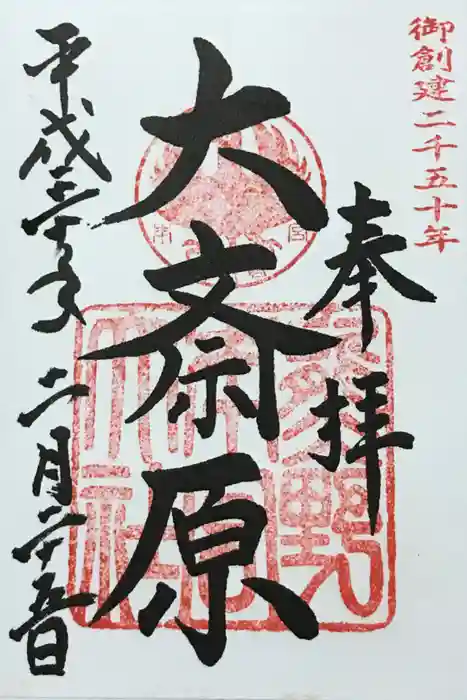 御創建二千五十年
奉拝
大斎原
平成三十年 二月二十五日